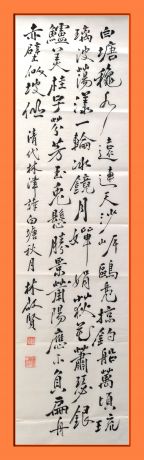 白塘秋水遠連天沙岸鷗鳧掠釣船萬頃玻
璃波蕩漾一輪冰鏡月嬋娟荻花蕭瑟銀
鱸美桂子芬芳玉兔懸勝景莆陽應不負扁舟
赤壁似坡仙 清代林淳詩白塘秋月 林啟賢